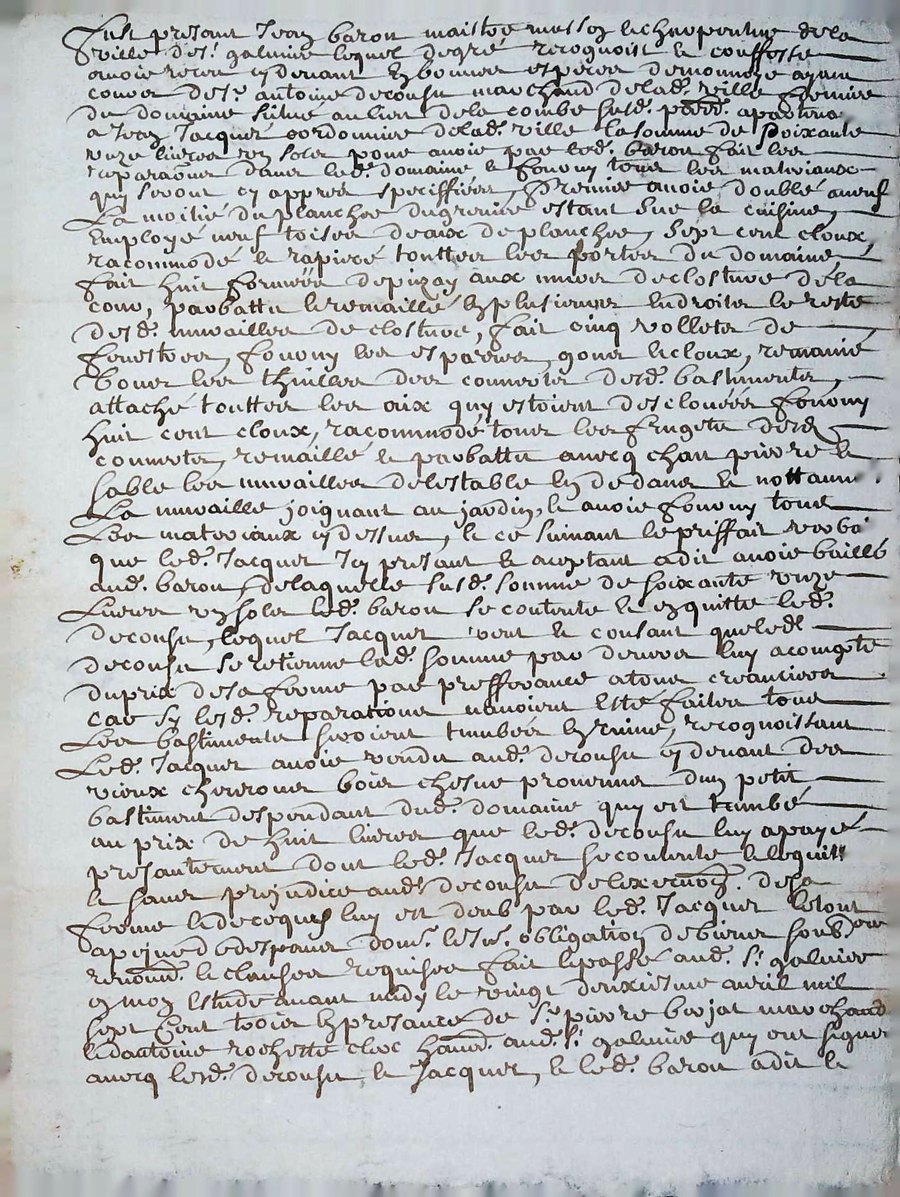 Fust presant Jean baron maistre masson & charpentier de la
ville de st. galmier lequel de gré recognoist & confesse
avoir receu cy devant en bonnes especes de monnoye ayant
cours de sr. antoine decousu marchand de lad. ville fermier
du domaine situé au lieu de la combe susd. parr. apartena
a Jean Jacquet cordonnier de lad. ville la somme de soixante
unze livres un sols pour avoir par led. baron fait les
reparaons dans led. domaine & fourny tous les materiaux
quy seront cy appres speciffiees, Premier avoir doublé a neuf
La moitié du plancher du grenier estant sur la cuisine,
Employé neuf toises daix de planches, sept cent cloux,
racommodé & rapiecé touttes les portes du domaine
fait huit formées de pizay aux murs de closture de la
cour, parbattu & remaillé en plusieurs endroits le reste
desd. murailles de closture, fait cinq vollets de
fenestres, fourny les esparres, gons & cloux, remanié
tous les thuilles des couverts desd. bastiments,
attaché touttes les aix quy estoient desclouées fourny
huit cent cloux, racommodé tous les degd.
couverts, remaillé & parbattu avecq chau pierre &
sable les murailles de lestable en dedans & nottam.
La muraille joignant au jardin, & avoir fourny tous
Les materiaux cy dessus, & ce suivant le priffait verbal
que led. Jacquet Icy presant & aceptant a dit avoir baillé
aud. baron, de laquelle susd. somme de soixante unze
Livres un sols led. baron se contente & en quitte led.
decousu, lequel Jacquet veut & consant que led.
decousu se retienne lad. somme par devers luy a compte
du prix de sa ferme par prefferance a tous creanciers
car sy lesd. reparations navoient esté faites tous
Les bastiments seroient tumbés en ruine, recognoissant
Led. Jacquet avoir vendu aud. decousu cy devant des
vieux chevrons bois chesne provenus dun petit
bastiment despendant dud. domaine quy est tumbé
au prix de huit livres que led. decousu luy a payé
presantement dont led. Jacquet se contente & le quitt
& sans prejudice aud. decousu de lexecuon. de sa
ferme & de ce quy luy est deub par led. Jacquet & tout
a peine de despans dom. & Int. obligation de biens soub.
renond. & clauses requises fait & passé aud. st. galmier
en mon Estude avant midy le vingt deuxiesme avril mil
sept Cent trois En presance de sr. pierre bajat marchand
& dantoine rochette clerc habit. aud. st. galmier quy ont signé
avecq lesd. decousu, & Jacquet, & led. baron a dit ne